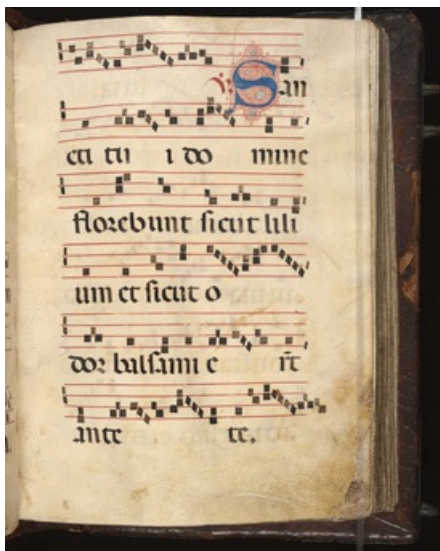 San
cti tu i do mine
florebunt sicut lili
um et sicut o
dor balsami e rt̄
ante te.